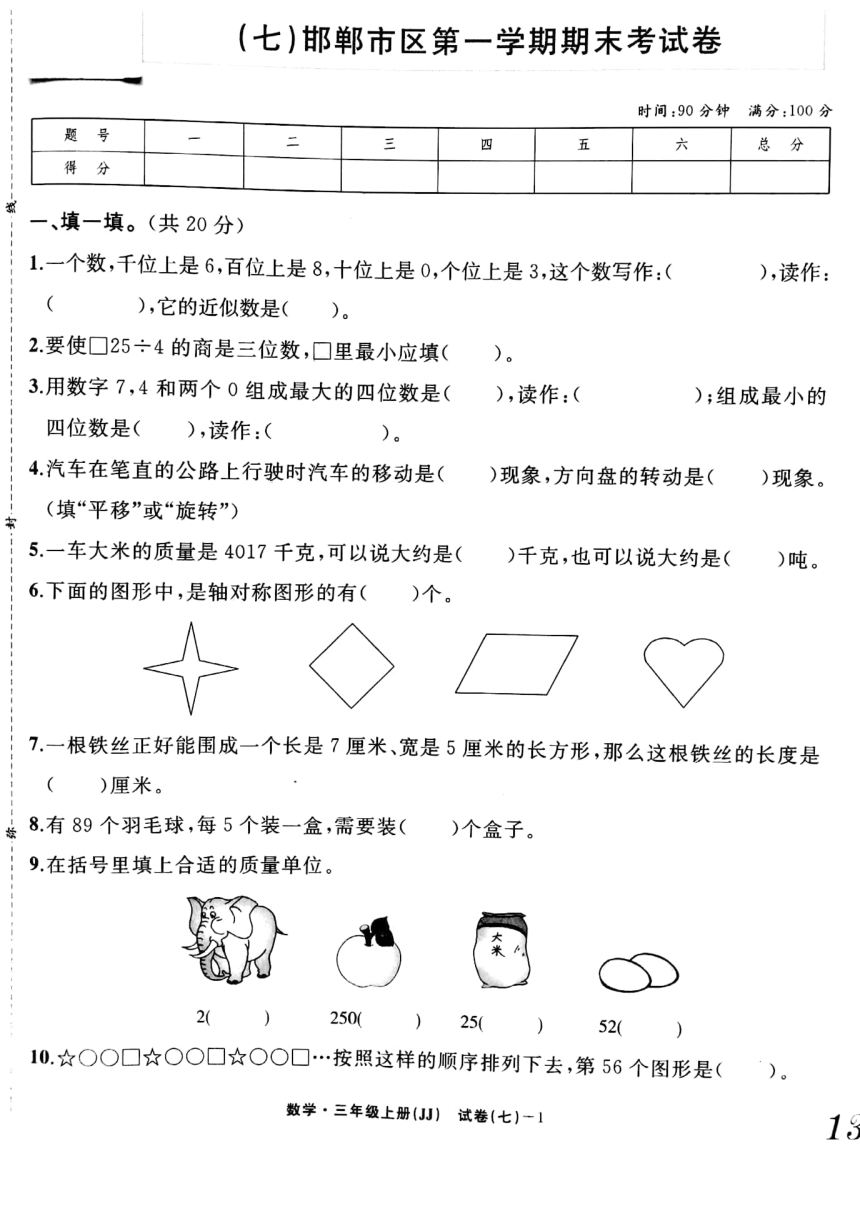 (七)邯郸市区第一学期期末考试卷
时间:90分钟 满分:100分
题 号 一 二 三 四 五 六 总 分
得 分
一、填一填。(共20分)
1.一个数,千位上是6,百位上是8,十位上是0,个位上是3,这个数写作:( ),读作:
( ),它的近似数是( )。
2.要使□25÷4的商是三位数,□里最小应填( )。
3.用数字7,4和两个0组成最大的四位数是( ),读作:( );组成最小的
四位数是( ),读作:( )。
4.汽车在笔直的公路上行驶时汽车的移动是( )现象,方向盘的转动是( )现象。
(填“平移”或“旋转”)
5.一车大米的质量是4017千克,可以说大约是( )千克,也可以说大约是( )吨。
6.下面的图形中,是轴对称图形的有( )个。
7.一根铁丝正好能围成一个长是7厘米、宽是5厘米的长方形,那么这根铁丝的长度是
( )厘米。
8.有89个羽毛球,每5个装一盒,需要装( )个盒子。
9.在括号里填上合适的质量单位。
大米
2( ) 250( ) 25( ) 52( )
10.☆○○□☆○○□☆○○□…按照这样的顺序排列下去,第56个图形是( )。
数学·三年级上册(JJ) 试卷(七)-1
13
线
封
弥